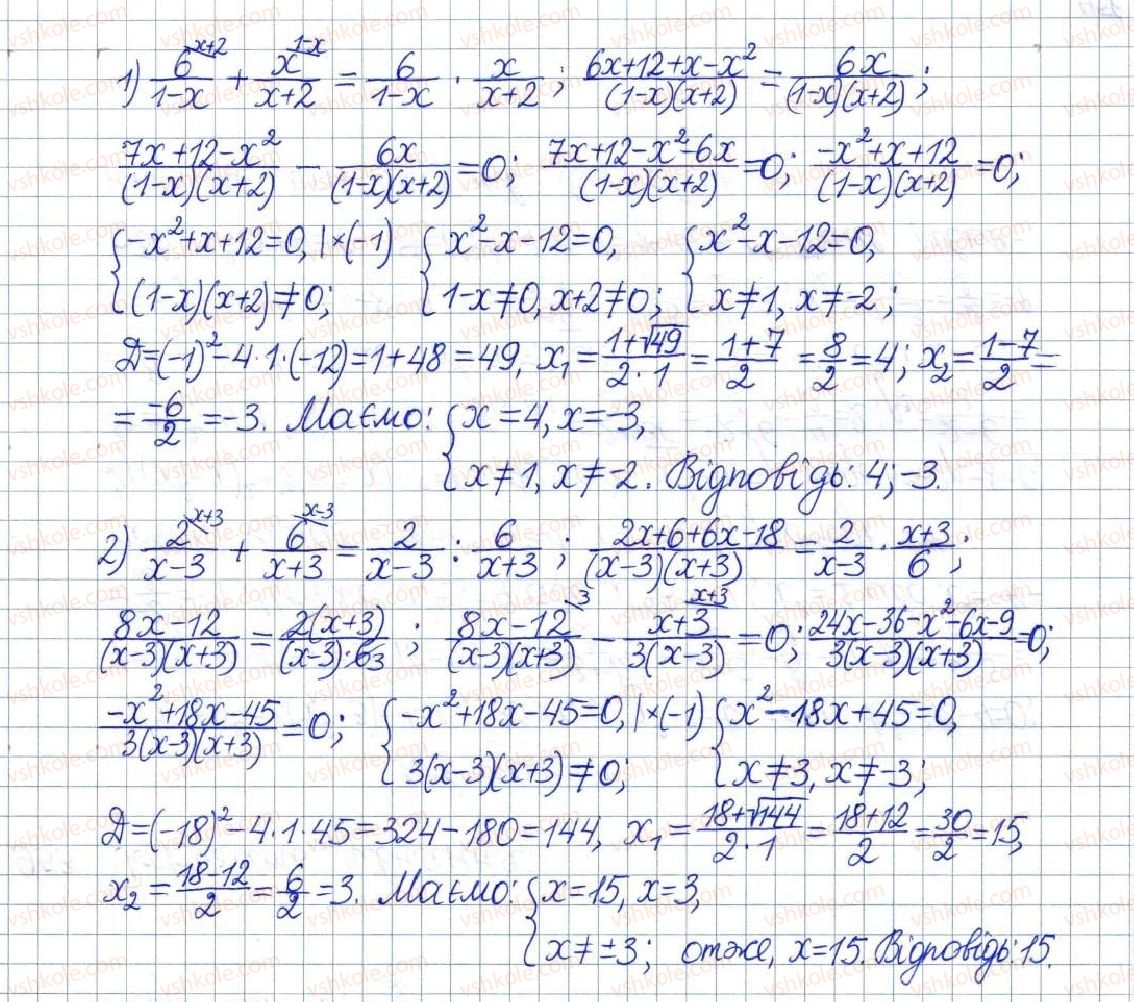 1) 6^{x+2}/(1-x) + x^{1-x}/(x+2) = 6/(1-x) · x/(x+2); (6x+12+x-x²)/((1-x)(x+2)) = 6x/((1-x)(x+2));
(7x+12-x²)/((1-x)(x+2)) - 6x/((1-x)(x+2)) = 0; (7x+12-x²-6x)/((1-x)(x+2)) = 0; (-x²+x+12)/((1-x)(x+2)) = 0;
{ -x²+x+12=0, |×(-1) { x²-x-12=0, { x²-x-12=0,
(1-x)(x+2)≠0; 1-x≠0, x+2≠0; x≠1, x≠-2;
Д=(-1)²-4·1·(-12)=1+48=49, x₁ = (1+√49)/(2·1) = (1+7)/2 = 8/2 = 4; x₂ = (1-7)/2 =
= -6/2 = -3. Маємо: { x=4, x=-3,
x≠1, x≠-2. Відповідь: 4; -3.
2) 2^{x+3}/(x-3) + 6^{x-3}/(x+3) = 2/(x-3) : 6/(x+3); (2x+6+6x-18)/((x-3)(x+3)) = 2/(x-3) · (x+3)/6;
(8x-12)/((x-3)(x+3)) = 2(x+3)/((x-3)·6₃); (8x-12)^{3}/((x-3)(x+3)) - (x+3)^{x+3}/(3(x-3)) = 0; (24x-36-x²-6x-9)/(3(x-3)(x+3)) = 0;
(-x²+18x-45)/(3(x-3)(x+3)) = 0; { -x²+18x-45=0, |×(-1) { x²-18x+45=0,
3(x-3)(x+3)≠0; x≠3, x≠-3;
Д=(-18)²-4·1·45=324-180=144, x₁ = (18+√144)/(2·1) = (18+12)/2 = 30/2 = 15,
x₂ = (18-12)/2 = 6/2 = 3. Маємо: { x=15, x=3,
x≠±3; отже, x=15. Відповідь: 15.
vshkole.com